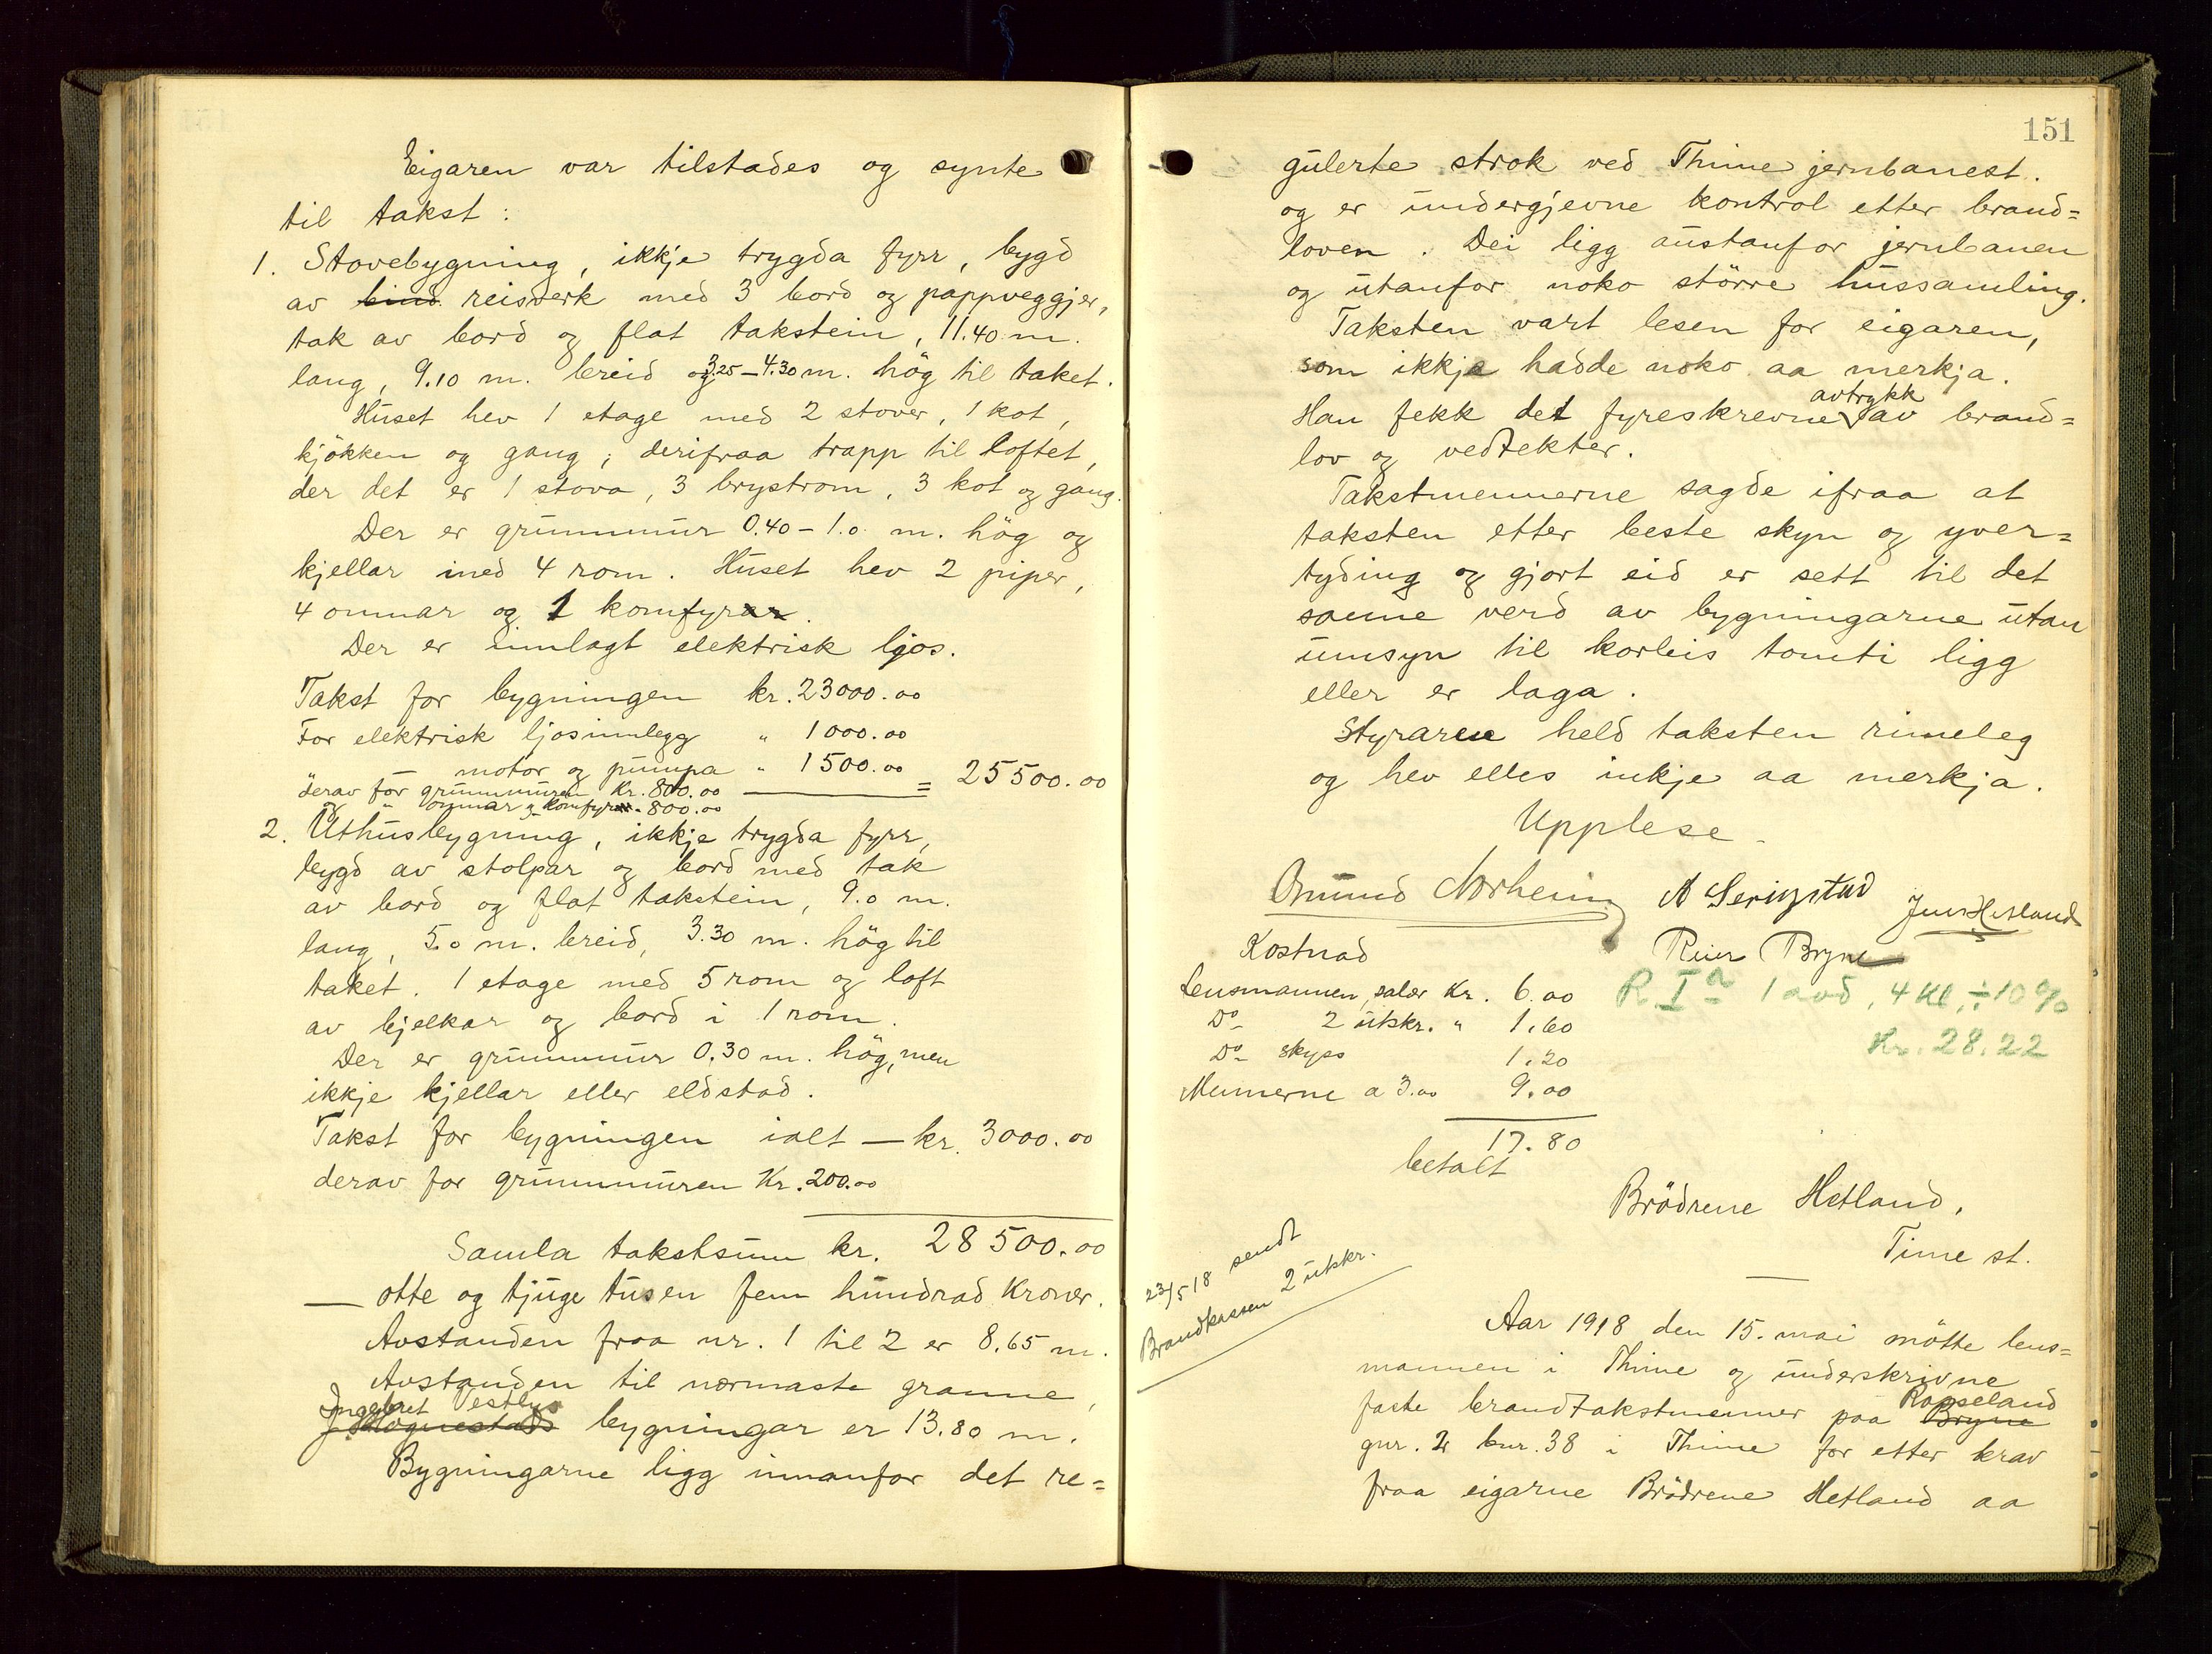 Eigaren var tilstades og synte
til takst:
1. Stovebygning, ikkje trygda fyrr, bygd
av bind reisverk med 3 bord og pappveggjer,
tak av bord og flat takstein, 11.40 m.
lang, 9.10 m. breid og 3.25-4.30 m. hög til taket.
Huset hev 1 etage med 2 stover, 1 kot,
kjökken og gang; derifraa trapp til loftet,
der det er 1 stova, 3 brystrom, 3 kot og gang.
Der er grunnmur 0.40-1.0 m. hög og
kjellar med 4 rom. Huset hev 2 piper,
4 omnar og 1 komfyrar.
Der er innlagt elektrisk ljos.
Takst for bygningen kr. 23000.00
For elektrisk ljosinnlegg " 1000.00
motor og pumpa " 1500.00 = 25500.00
derav for grunnmuren Kr. 800.00
" omnar og komfyrar - 800.00
2. Uthusbygning, ikkje trygda fyrr,
bygd av stolpar og bord med tak
av bord og flat takstein, 9.0 m.
lang, 5.0 m. breid, 3.30 m. hög til
taket. 1 etage med 5 rom og loft
av bjelkar og bord i 1 rom.
Der er grunnmur 0.30 m. hög, men
ikkje kjellar eller eldstad.
Takst for bygningen ialt — kr. 3000.00
derav for grunnmuren Kr. 200.00
Samla takstsum kr. 28500.00
— otte og tjuge tusen fem hundrad kroner.
Avstanden fraa nr. 1 til 2 er 8.65 m.
Avstanden til nærmaste granne,
Ingebret Vestlys
J. Høgnestads bygningar er 13.80 m.
Bygningarne ligg innanfor det re=
151
gulerte strok ved Thime jernbanest.
og er undergjevne kontrol etter brand=
loven. Dei ligg austanfor jernbanen
og utanfor noko större hussamling.
Taksten vart lesen for eigaren,
som ikkje hadde noko aa merkja.
avtrykk
Han fekk det fyreskrevne av brand=
lov og vedtekter.
Takstmennerne sagde ifraa at
taksten etter beste skyn og yver=
tyding og gjort eid er sett til det
sanne verd av bygningarne utan
umsyn til korleis tomti ligg
eller er laga.
Styraren held taksten rimeleg
og hev elles inkje aa merkja.
Upplese
Omund Norheim A Serigstad Jens Hetland
Kostnad Reier Bryne
Lensmannen, salær Kr. 6.00 R. Iᵃ 1 avd, 4 Kl, ÷10%
Do 2 utskr. " 1.60
Do skyss 1.20 Kr. 28.22
Mennerne a 3.00 9.00
17.80
betalt
Brödrene Hetland,
Time st.
23/5 18 sendt
Brandkassen 2 utskr.
Aar 1918 den 15. mai mötte lens=
mannen i Thime og underskrivne
Rosseland
faste brandtakstmenner paa Bryne
gnr. 2 bnr. 38 i Thime for etter krav
fraa eigarne Brödrene Hetland aa